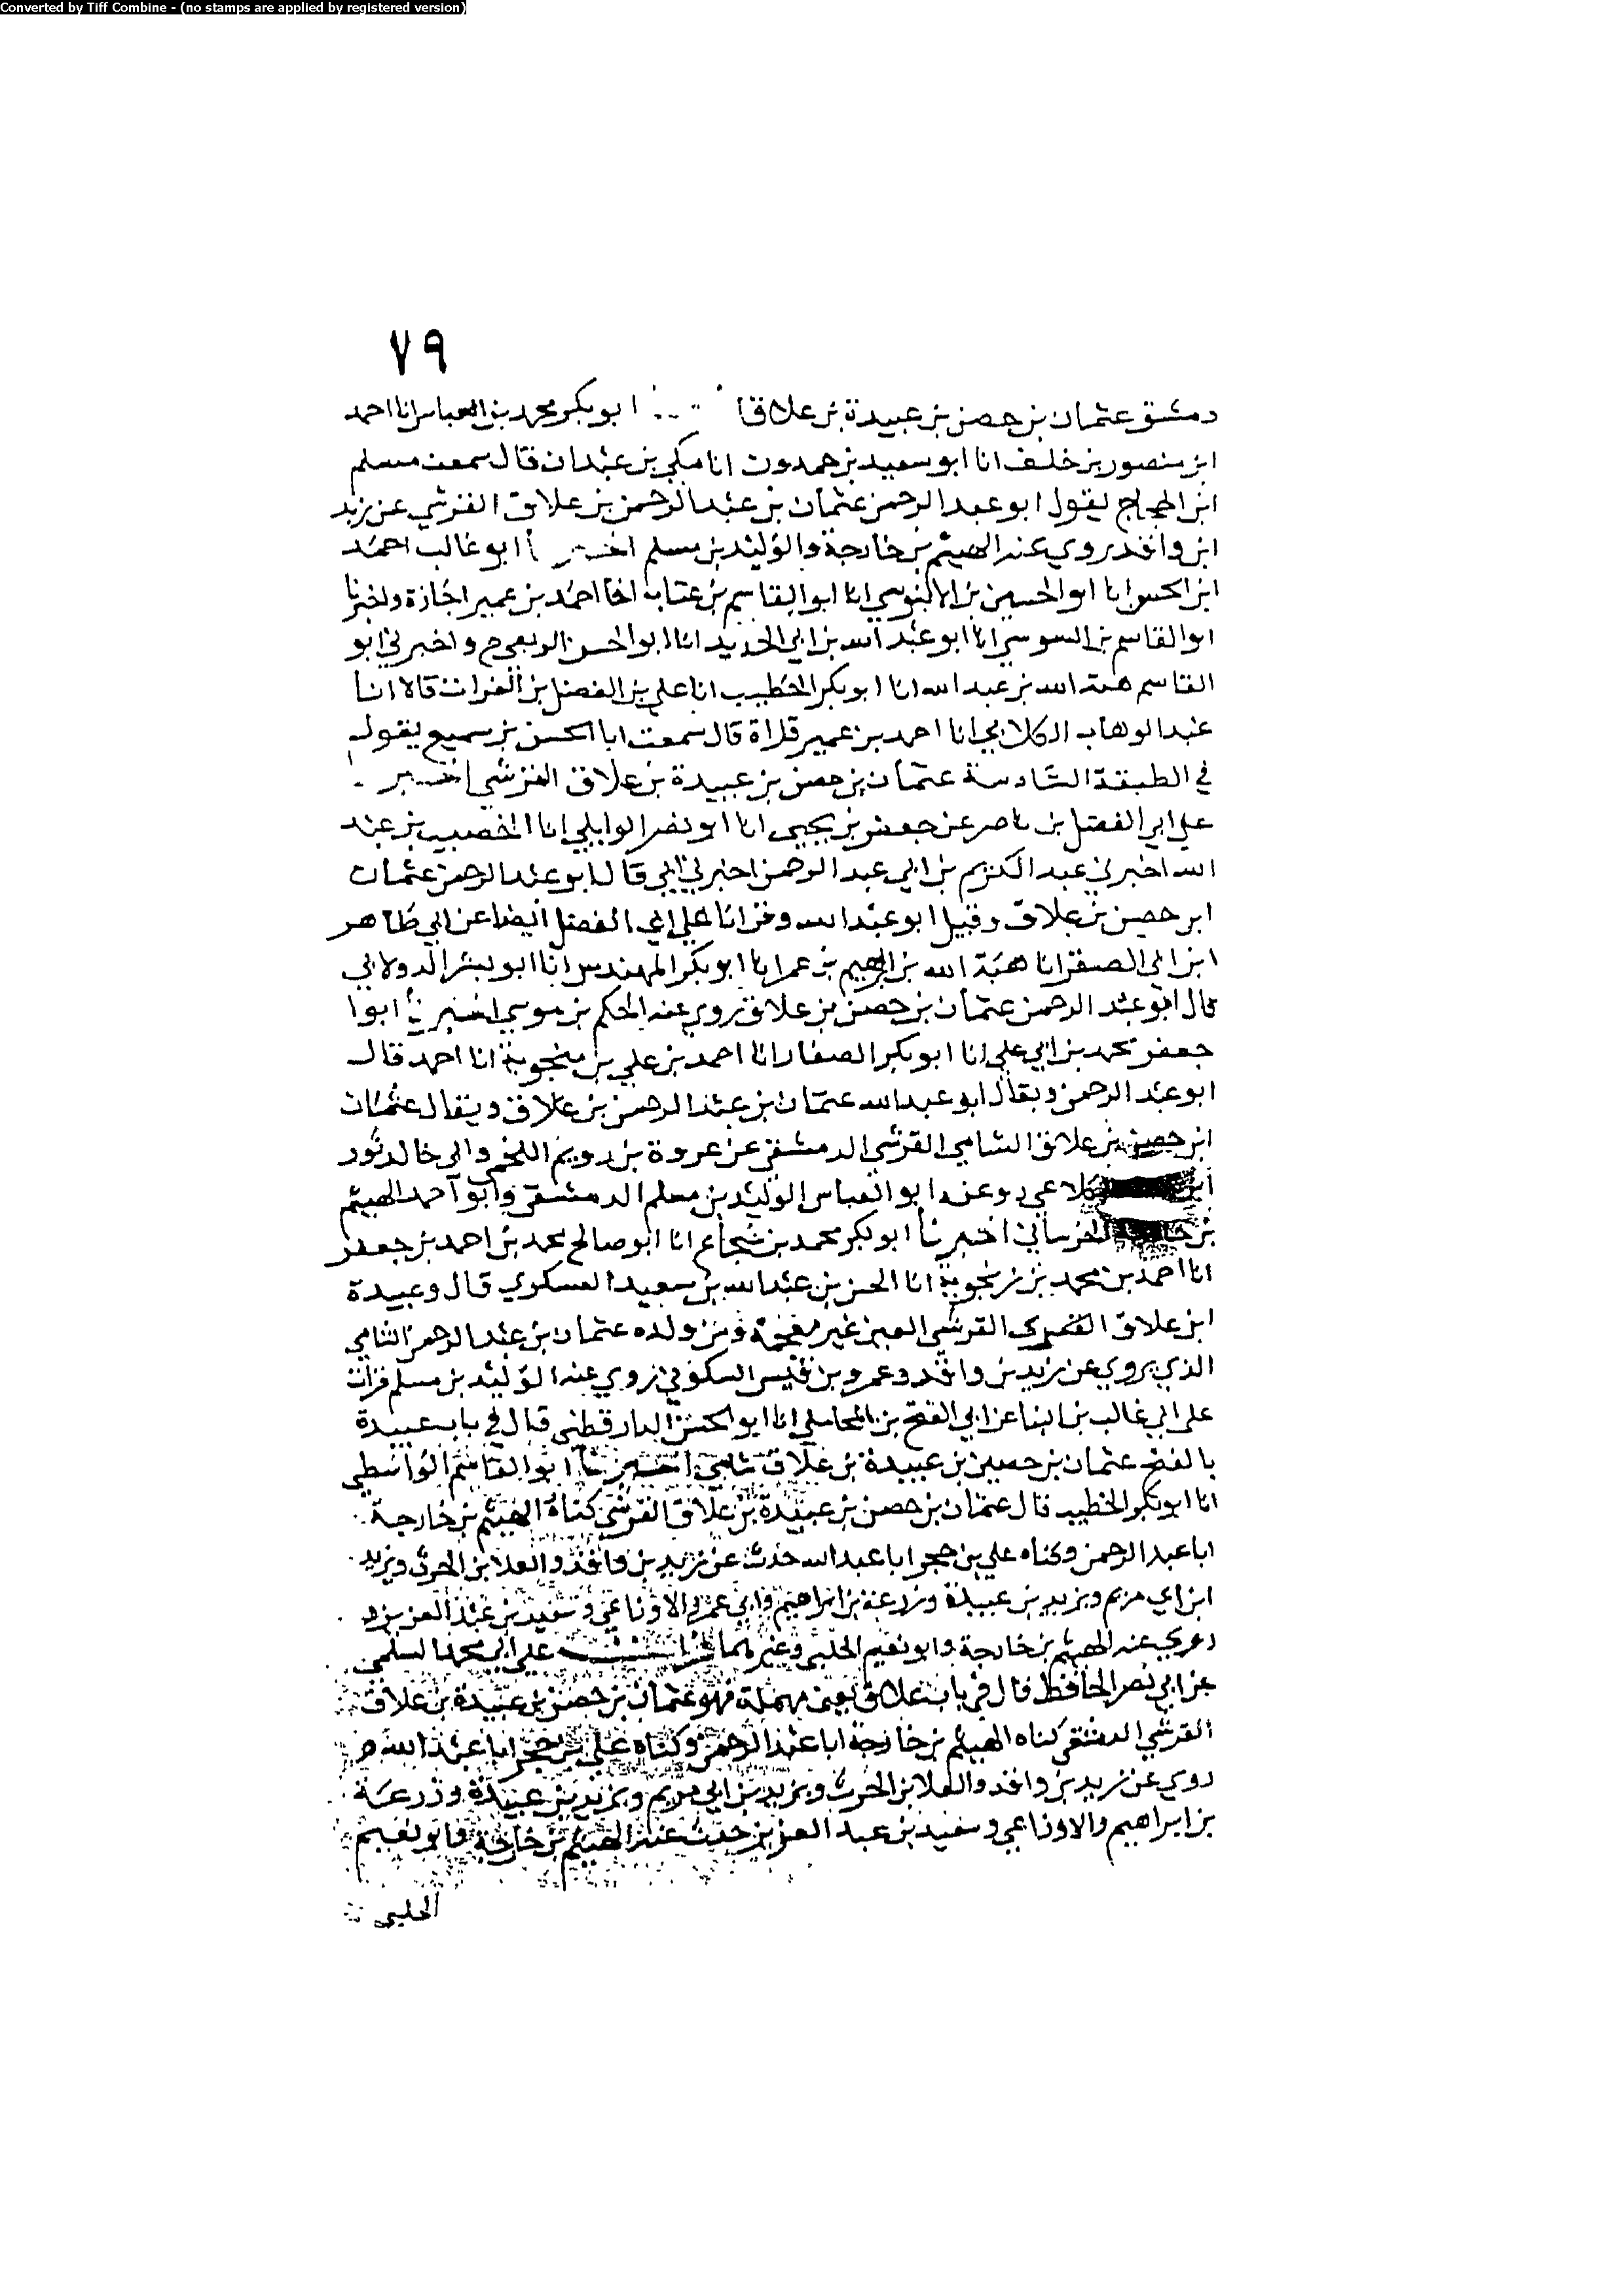 Converted by Tiff Combine - (no stamps are applied by registered version)
٧٩
دمشق عثمان بن حصن بن عبيدة بن علاق ابو بكر محمد بن العباس انا احمد
ابن منصور بن خلف انا ابو سعيد بن حمدون انا مكي بن عبدان قال سمعت مسلم
ابن الحجاج يقول ابو عبد الرحمن عثمان بن عبد الرحمن بن علاق القرشي عن زيد
ابن واقد روي عنه الهيثم بن خارجة والوليد بن مسلم اخبرنا ابو غالب احمد
ابن الحسن انا ابو الحسين بن الابنوسي انا ابو القاسم بن عتاب انا احمد بن عمير اجازة واخبرنا
ابو القاسم بن السوسي انا ابو عبد الله بن ابي الحديد انا ابو الحسن الربعي ح واخبرني ابو
القاسم هبة الله بن عبد الله انا ابو بكر الخطيب انا علي بن الفضل بن الفرات قالا انا
عبد الوهاب الكلابي انا احمد بن عمير قراة قال سمعت ابا الحسن بن سميع يقول
في الطبقة السادسة عثمان بن حصن بن عبيدة بن علاق القرشي اخبر
علي ابي الفضل بن ناصر عن جعفر بن يحيى انا ابو نصر الوايلي انا الخصيب بن عبد
الله اخبرني عبد الكريم بن ابي عبد الرحمن اخبرني ابي قال ابو عبد الرحمن عثمان
ابن حصين بن علاق وقيل ابو عبد الله وقرانا علي ابي الفضل ايضا عن ابي طاهر
ابن ابي الصقر انا هبة الله بن ابراهيم بن عمر انا ابو بكر المهندس انا ابو بشر الدولابي
قال ابو عبد الرحمن عثمان بن حصن بن علاق روي عنه الحكم بن موسي اخبرنا ابوا
جعفر محمد بن ابي علي انا ابو بكر الصفار انا احمد بن علي بن منجوية انا احمد قال
ابو عبد الرحمن ويقال ابو عبد الله عثمان بن عبد الرحمن بن علاق ويقال عثمان
ابن حصين بن علاق الشامي القرشي الدمشقي عن عروة بن رويم اللخمي وابي خالد ثور
ابن الكلاعي روي عنه ابو العباس الوليد بن مسلم الدمشقي وابو احمد الهيثم
بن خارجة الخرساني اخبرنا ابو بكر محمد بن شجاع انا ابو صالح محمد بن احمد بن جعفر
انا احمد بن محمد بن زنجوية انا الحسن بن عبد الله بن سعيد العسكري قال وعبيدة
ابن علاق القرشي العين غير معجمة ومن ولده عثمان بن عبد الرحمن الشامي
الذي يروي عن زيد بن واقد وعمرو بن قيس السكوني روي عنه الوليد بن مسلم قرات
علي ابي غالب بن البنا عن ابي الفتح بن المحاملي انا ابو الحسن الدارقطني قال في باب عبيدة
بالفتح عثمان بن حصين بن عبيدة بن علاق شامي اخبرنا ابو القاسم الواسطي
انا ابو بكر الخطيب قال عثمان بن حصن بن عبيدة بن علاق القرشي كناه الهيثم بن خارجة
ابا عبد الرحمن وكناه علي بن حجر ابا عبد الله حدث عن زيد بن واقد والعلا بن الحرث ويزيد
ابن ابي مريم ويزيد بن عبيدة وزرعة بن ابراهيم وابي عمرو الاوزاعي وسعيد بن عبد العزيز
روي عنه الهيثم بن خارجة وابو نعيم الحلبي وغيرهما قرات علي ابي محمد السلمي
عن ابي نصر الحافظ قال في باب علاق بعين مهملة فهو عثمان بن حصن بن عبيدة بن علاق
القرشي الدمشقي كناه الهيثم بن خارجة ابا عبد الرحمن وكناه علي بن حجر ابا عبد الله
روي عن زيد بن واقد والعلا بن الحرث ويزيد بن ابي مريم ويزيد بن عبيدة وزرعة
بن ابراهيم والاوزاعي وسعيد بن عبد العزيز حدث عنه الهيثم بن خارجة وابو نعيم
الحلبي